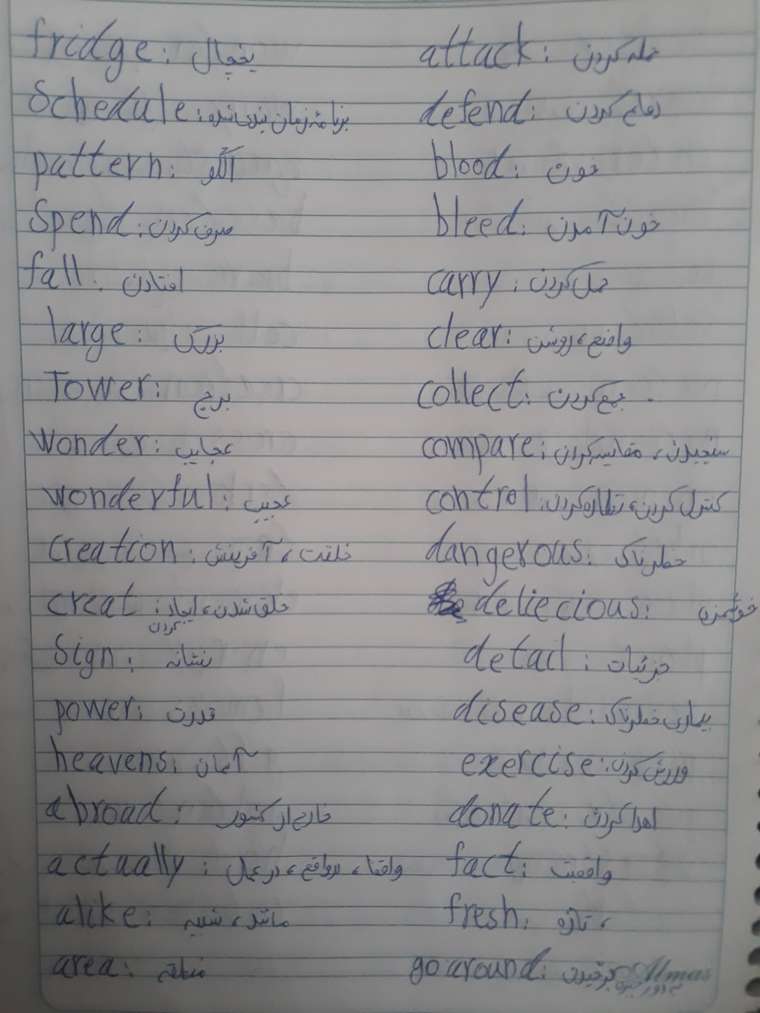 fridge: یخچال
schedule: برنامه زمان بندی شده
pattern: الگو
spend: صرف کردن
fall: افتادن
large: بزرگ
Tower: برج
wonder: عجایب
wonderful: عجیب
creation: خلقت، آفرینش
creat: خلق شدن، ایجاد
کردن
Sign: نشانه
power: قدرت
heavens: آسمان
abroad: خارج از کشور
actually: واقعا، درواقع، در عمل
alike: مانند، شبیه
area: منطقه
attack: حمله کردن
defend: دفاع کردن
blood: خون
bleed: خون آمدن
carry: حمل کردن
clear: واضح، روشن
collect: جمع کردن
compare: سنجیدن، مقایسه کردن
control: کنترل کردن، نظاره کردن
dangerous: خطرناک
deliecious: خوشمزه
detail: جزئیات
disease: بیماری خطرناک
exercise: ورزش کردن
donate: اهدا کردن
fact: واقعیت
fresh: تازه،
go around: چرخیدن
Almas